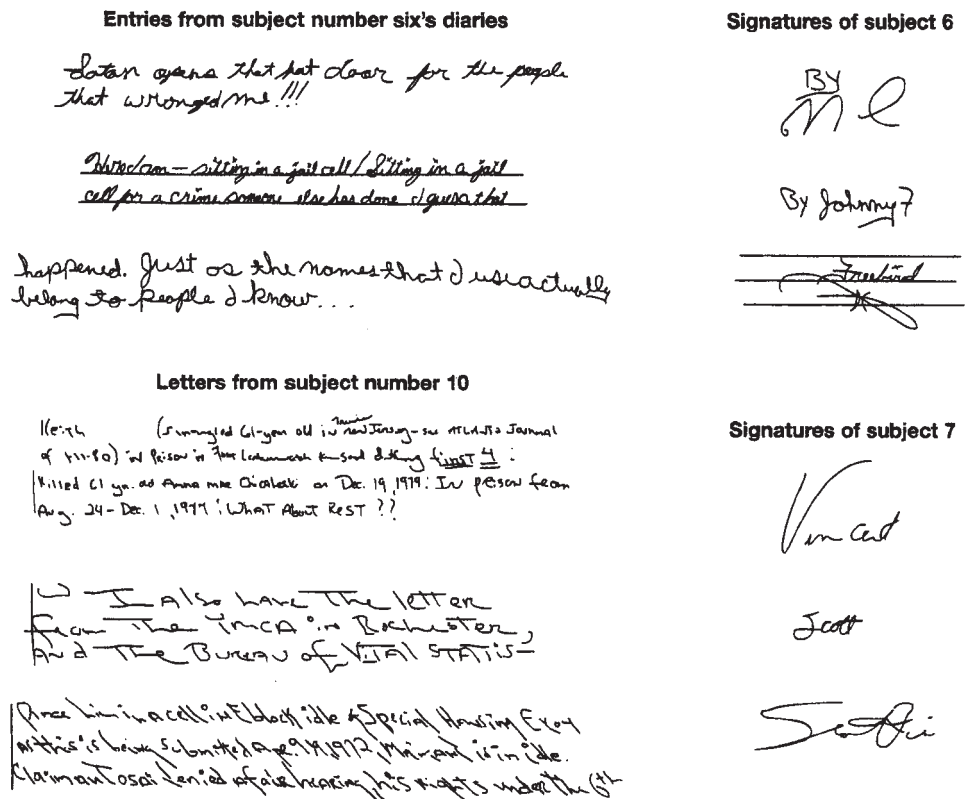 Entries from subject number six's diaries
Satan opens that hot door for the people
that wronged me!!!
– sitting in a jail cell/Sitting in a jail
cell for a crime someone else has done I guess that
happened. Just as the names that I use actually
belong to people I know...
Letters from subject number 10
Keith (strangled 61-year old in New Jersey-see Atlantic Journal
of) in Prison in during first 4:
Killed 61 yr. old Anna mae on Dec. 19, 1979: In prison from
Aug. 24-Dec. 1, 1977: WHAT About REST ??
I Also have The letter
from The YMCA in Rochester,
And The Bureau of VITAL STATIS-
him in a cell in E block idle & Special Housing
As this is being submitted 1972, is in idle.
Claimant denied A fair hearing, his rights under the 6th
Signatures of subject 6
BY
By Johnny 7
Freebird
Signatures of subject 7
Vincent
Scott